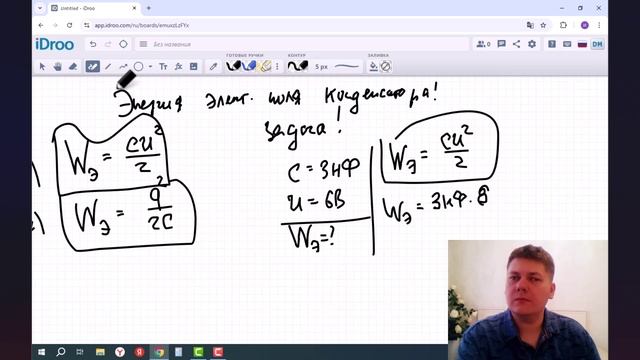 Untitled - iDroo
app.idroo.com/ru/boards/emuxzLzFYx
iDroo
Без названия
0
DM
ГОТОВЫЕ РУЧКИ
КОНТУР
ЗАЛИВКА
5 px
Энергия элект. поля конденсатора!
Задача!
Wэ = CU²/2
Wэ = q²/2C
C = 3нФ
U = 6В
Wэ = ?
Wэ = CU²/2
Wэ = 3нФ · 6